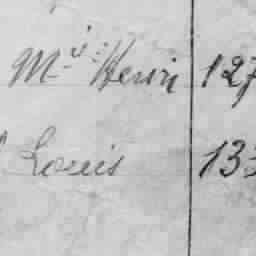 Mis Henri 127
Louis 133